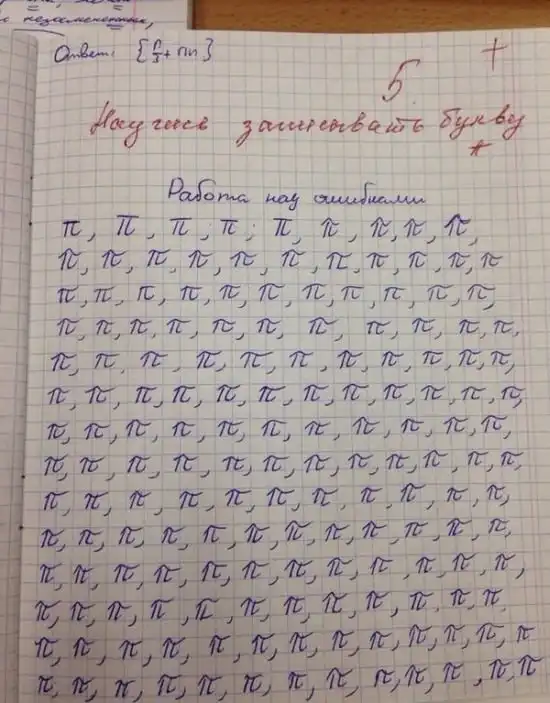 Ответ: {π/3 + πn}
5 +
Научись записывать букву
π
Работа над ошибками
π, π, π, π; π, π, π, π, π,
π, π, π, π, π, π, π, π, π, π, π
π, π, π, π, π, π, π, π, π, π, π,
π, π, π, π, π, π, π, π, π, π, π,
π, π, π, π, π, π, π, π, π, π, π,
π, π, π, π, π, π, π, π, π, π, π, π,
π, π, π, π, π, π, π, π, π, π, π,
π, π, π, π, π, π, π, π, π, π, π, π,
π, π, π, π, π, π, π, π, π, π, π,
π, π, π, π, π, π, π, π, π, π, π, π,
π, π, π, π, π, π, π, π, π, π, π, π,
π, π, π, π, π, π, π, π, π, π, π, π,
π, π, π, π, π, π, π, π, π, π, π, π, π
π, π, π, π, π, π, π, π, π, π, π, π, π